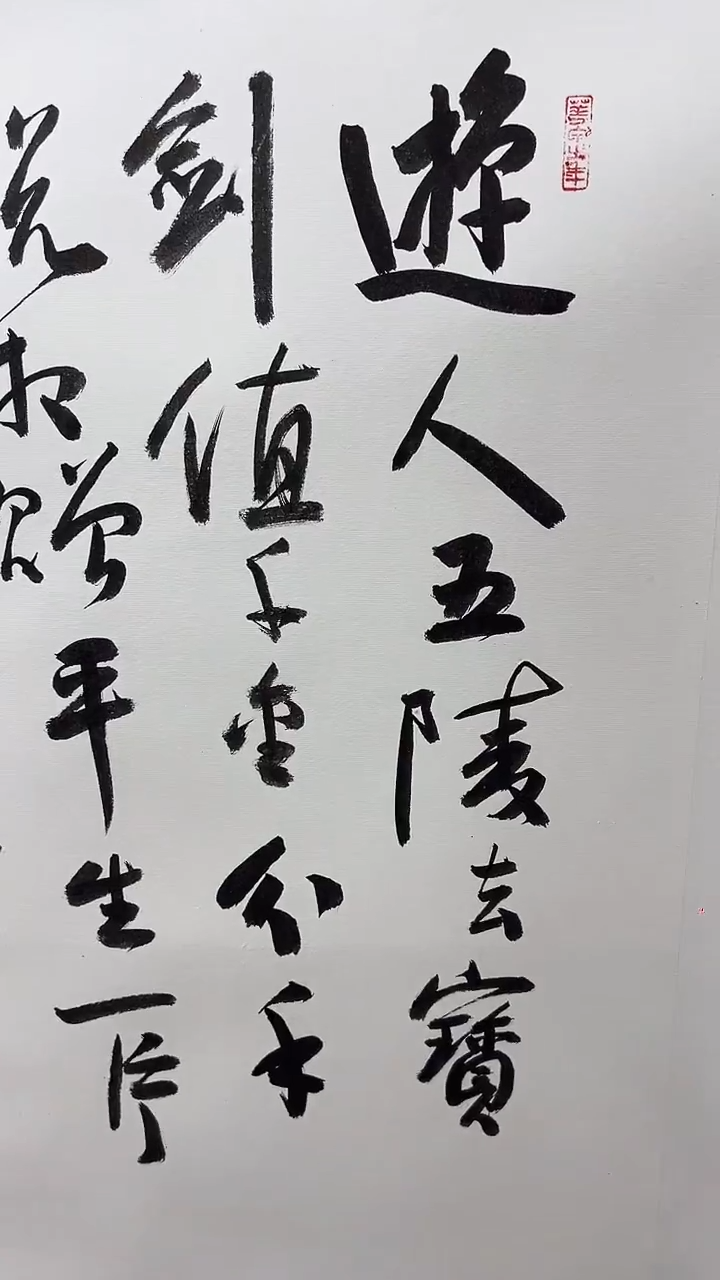 遊人五陵去寶
劍值千金分手
脱相贈平生一片